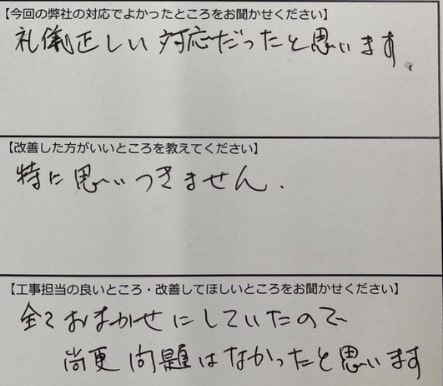 【今回の弊社の対応でよかったところをお聞かせください】
礼儀正しい対応だったと思います。
【改善した方がいいところを教えてください】
特に思いつきません.
【工事担当の良いところ・改善してほしいところをお聞かせください】
全ておまかせにしていたので
尚更問題はなかったと思います